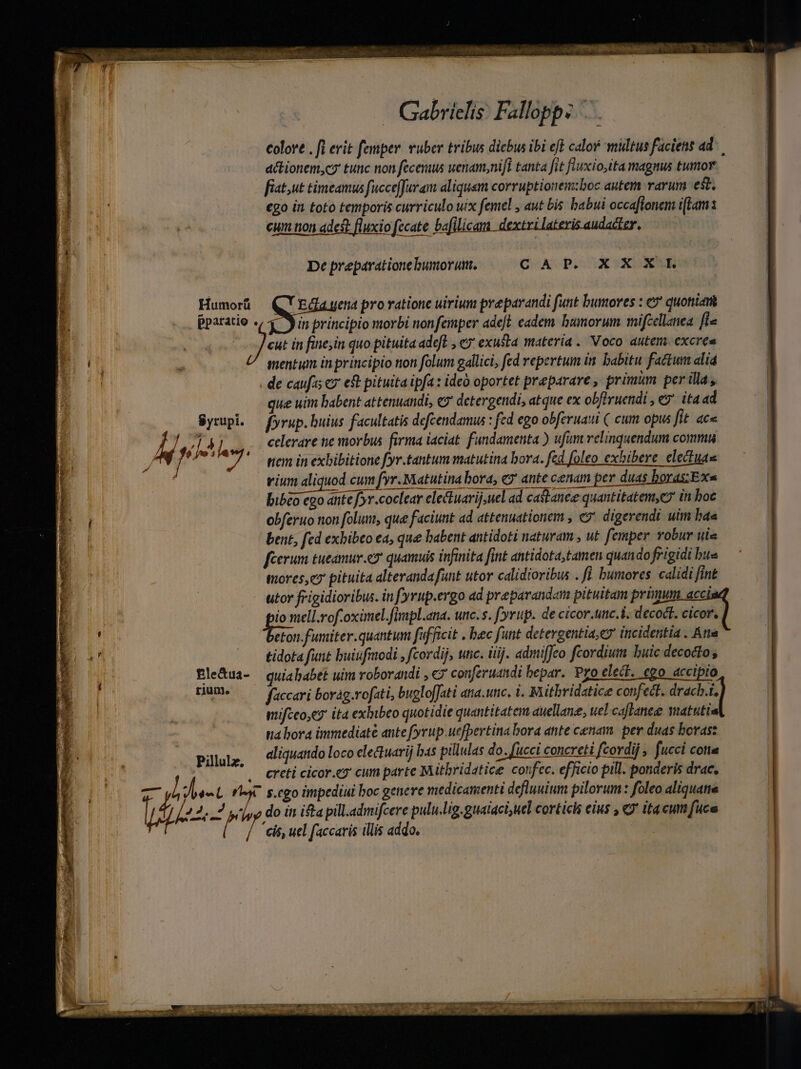 Gabrielis Fallopp:
colore . ſi erit ſemper ruber tribus diebus ibi eſt calor multus faciens ad
actionem,& tunc non ſecemus uenam,niſi tanta ſit fluxio,ita magnus tumor
fiat,ut timeamus ſucceſſuram aliquam corruptionem:hoc autem rarum est.
ego in toto temporis curriculo uix ſemel , aut bis habui occaſionem istam:
cum non adest fluxio ſecate baſilicam dextri lateris audacter.
De preparatione humorum. CAP. XXXXI.
Humorū
pparatio.
SEcta uena pro ratione uirium preparandi ſunt humores : & quoniam
in principio morbi non ſemper adeſt eadem humorum miſcellanea ſi=
cut in fine,in quo pituita adeſt , & exusta materia . Voco autem excre=
mentum in principio non ſolum gallici, ſed repertum in habitu factum alia
de cauſa; & est pituita ipſa : ideò oportet preparare , primùm per illa,
que uim habent attenuandi, & detergendi, atque ex obſtruendi , & ita ad
Syrupi.
ſyrup.huius facultatis deſcendamus : ſed ego obſeruaui ( cum opus ſit ac=
celerare ne morbus firma iaciat fundamenta ) uſum relinquendum commu
nem in exhibitione ſyr.tantum matutina hora. ſed ſoleo exhibere electua=
rium aliquod cum ſyr. Matutina hora, & ante cœnam per duas horas;Ex=
hibeo ego ante ſyr.coclear electuarij,uel ad castaneæ quantitatem,& in hoc
obſeruo non ſolum, que faciunt ad attenuationem , & digerendi uim ha=
bent, ſed exhibeo ea, que habent antidoti naturam , ut ſemper robur ui=
ſcerum tueamur.& quamuis infinita ſint antidota,tamen quando frigidi hu=
mores,& pituita alteranda ſunt utor calidioribus . ſi humores calidi ſint
utor frigidioribus. in ſyrup.ergo ad preparandam pituitam primum accia
pio mell.roſ.oximel.ſimpl.ana. unc.s. ſyrup. de cicor.unc.i. decoct. cicor.
beton.fumiter.quantum ſufficit . hæc ſunt detergentia,& incidentia . An=
tidota ſunt huiuſmodi , ſcordij, unc. iiij. admiſſeo ſcordium huic decocto,
Electua-
rium.
quia habet uim roborandi , & conſeruandi hepar. Pro elect. ego accipio
ſaccari borag.roſati, bugloſſati ana.unc. i. Mithridaticæ confect. drach.i.
miſceo,& ita exhibeo quotidie quantitatem auellane, uel caſtaneæ matuti=
na hora immediatè ante ſyrup.ueſpertina hora ante cœnam per duas horas:
Pillulæ.
aliquando loco electuarij has pillulas do. ſucci concreti ſcordij , ſucci con=
creti cicor.& cum parte Mithridaticæ confec. efficio pill. ponderis drac.
s.ego impediui hoc genere medicamenti defluuium pilorum : ſoleo aliquan=
do in ista pill.admiſcere pulu.lig.guaiaci,uel corticis eius , & ita cum ſuc=
cis, uel ſaccaris illis addo.